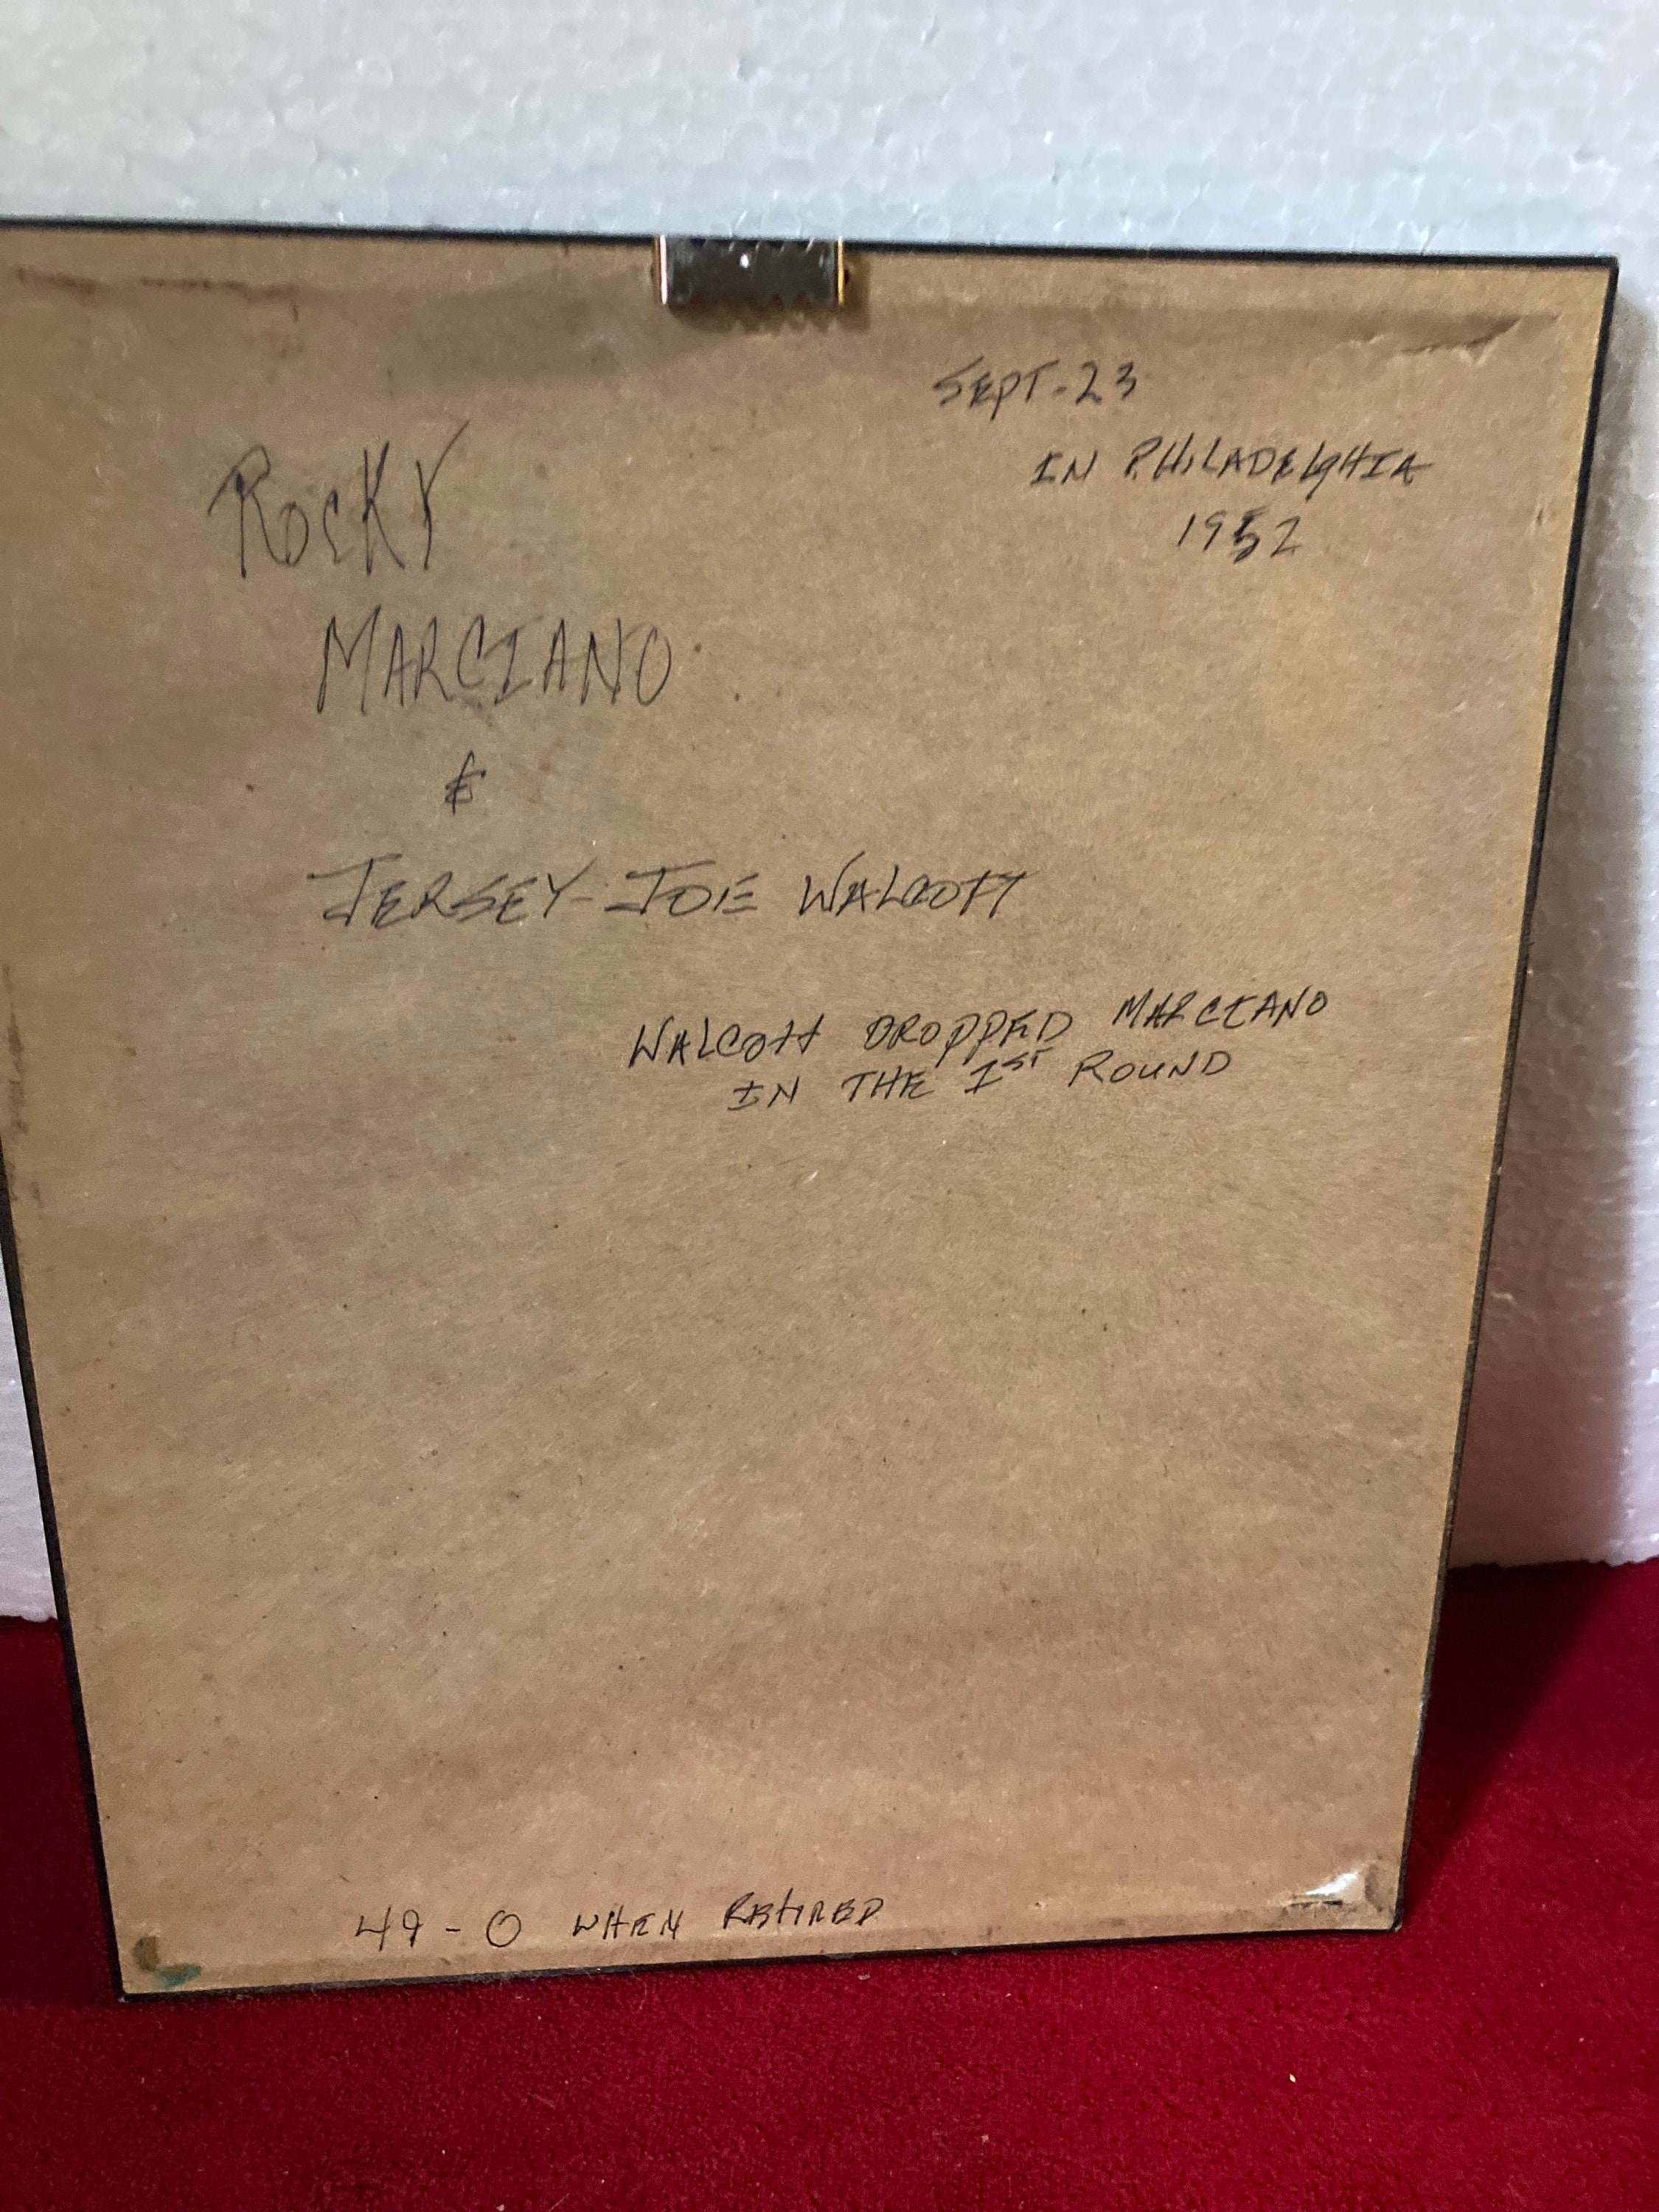 SEPT-23
IN PHILADELPHIA
1952
ROCKY
MARCIANO
&
JERSEY-JOE WALCOTT
WALCOTT DROPPED MARCIANO
IN THE 1ST ROUND
49-0 WHEN RETIRED